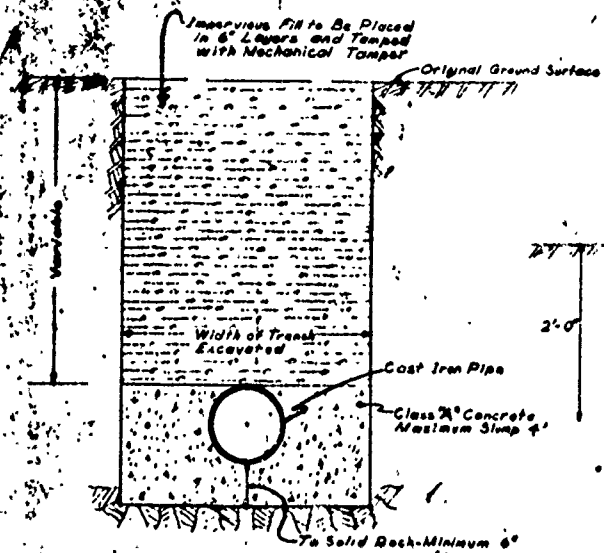 Impervious Fill to Be Placed
in 6" Layers and Tamped
with Mechanical Tamper
Original Ground Surface
Variable
2'-0"
Width of Trench
Excavated
Cast Iron Pipe
Class "A" Concrete
Maximum Slump 4"
To Solid Rock-Minimum 6"